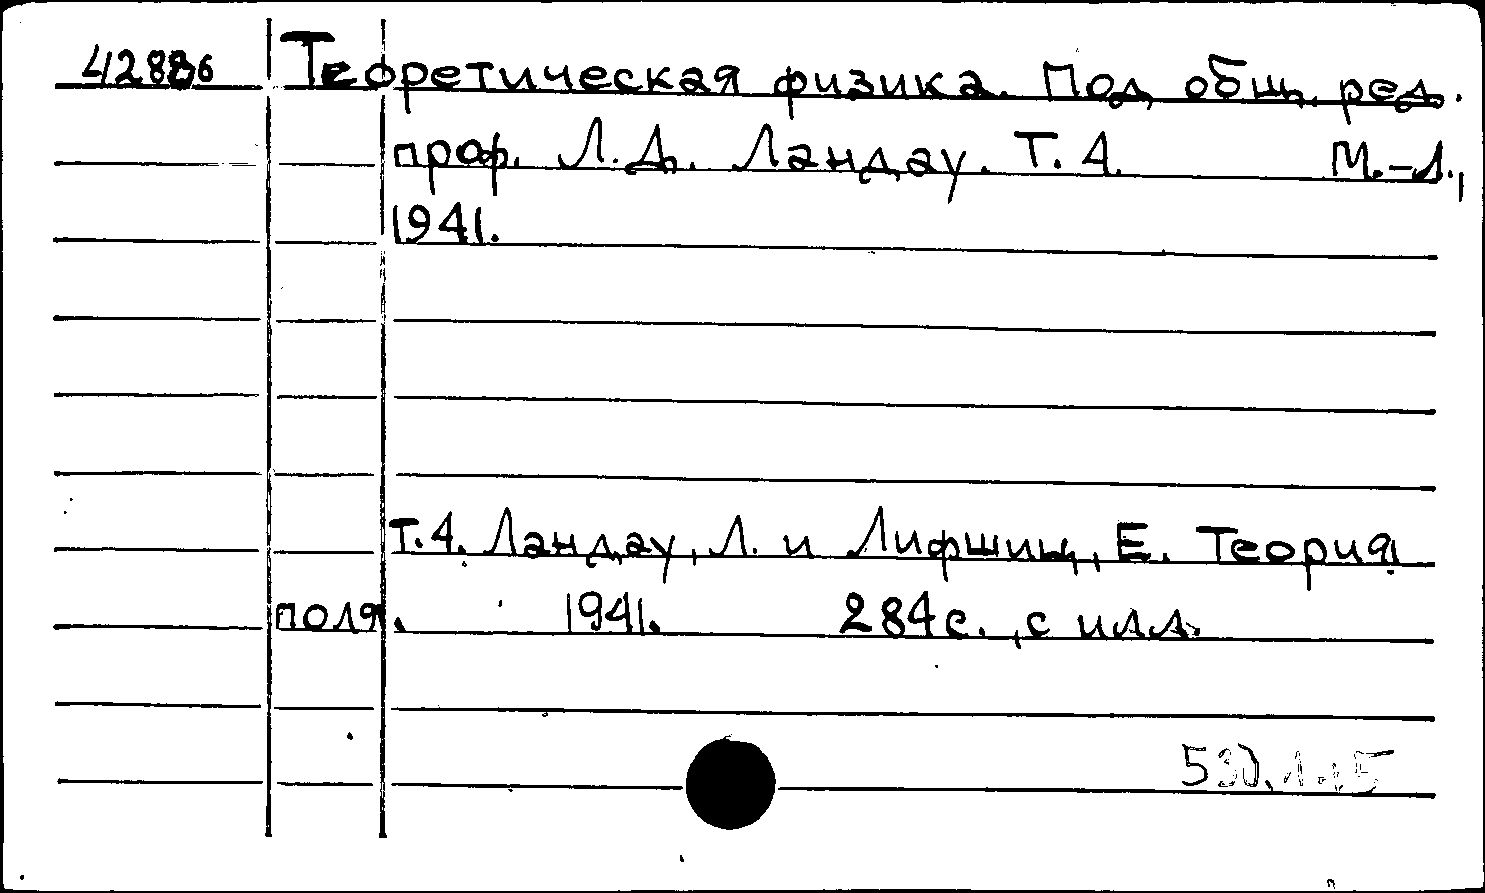 42886 Теоретическая физика. Под общ. ред.
проф. Л.Д. Ландау. Т. 4. М.-Л.,
1941.
Т.4. Ландау, Л. и Лифшиц, Е. Теория
поля. 1941. 284 с., с илл.